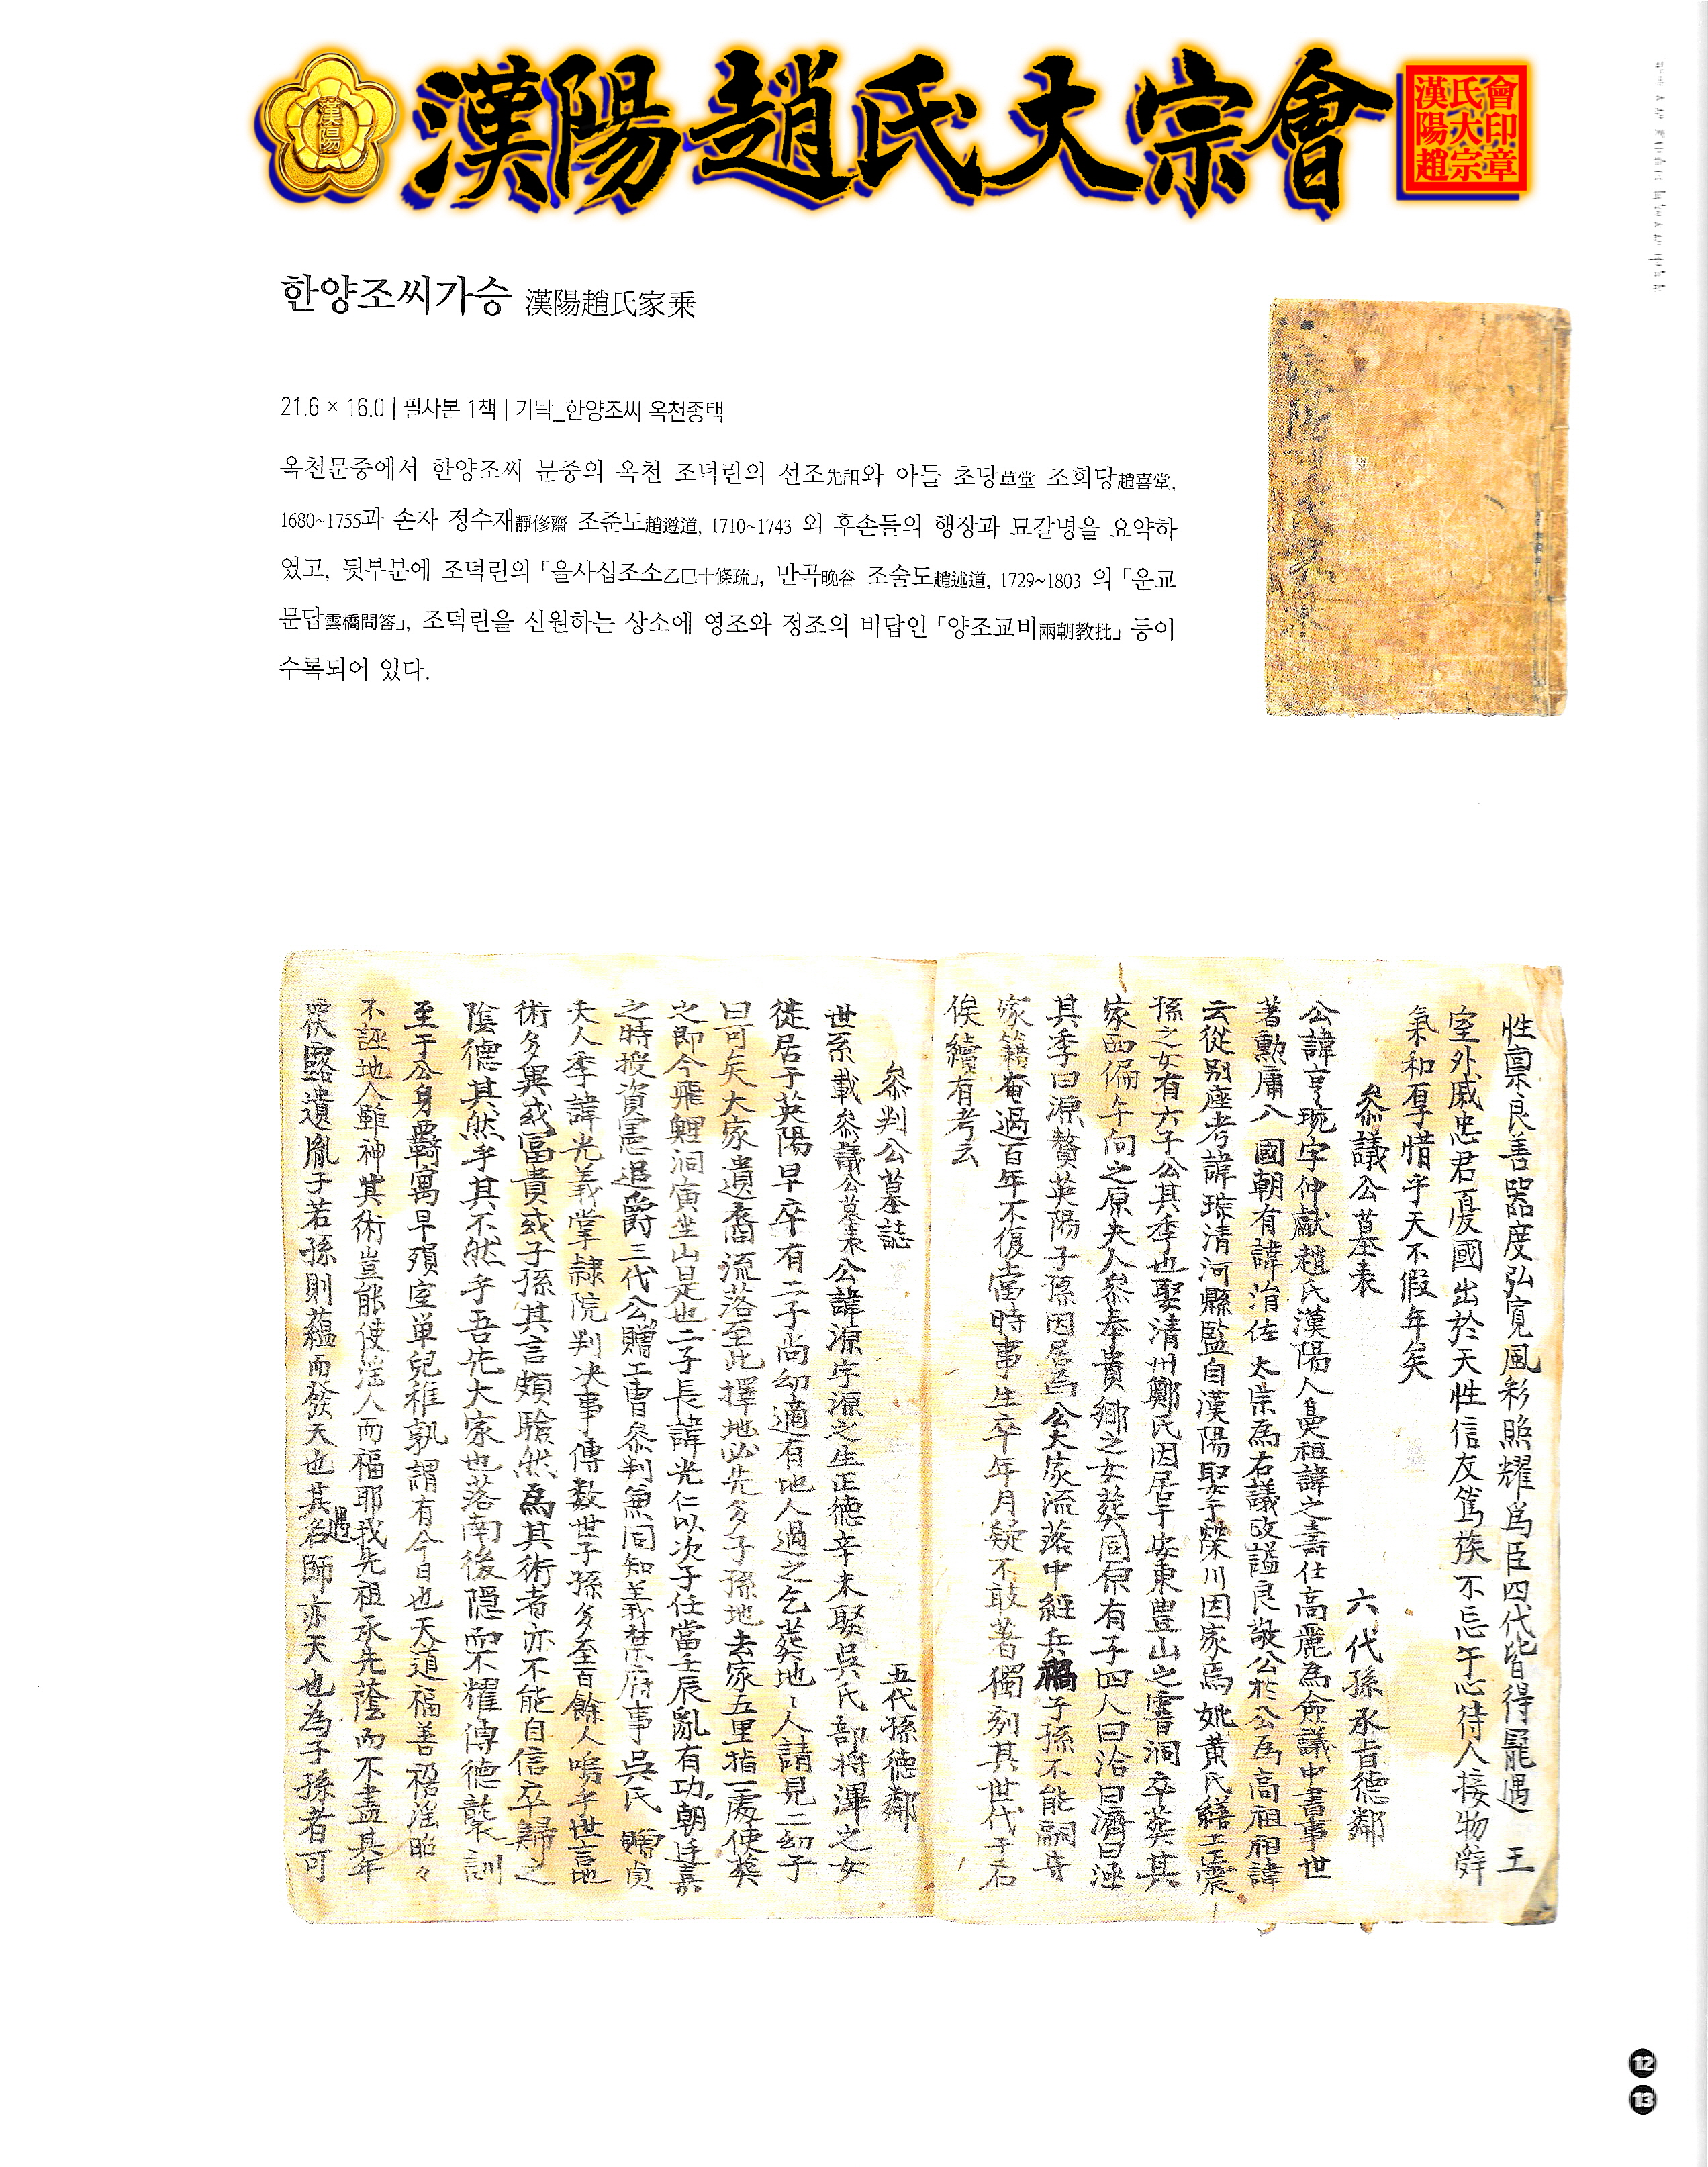 漢陽趙氏大宗會
漢陽
漢氏會
陽大印
趙宗章
한양조씨가승 漢陽趙氏家乘
21.6 × 16.0 | 필사본 1책 | 기탁_한양조씨 옥천종택
옥천문중에서 한양조씨 문중의 옥천 조덕린의 선조先祖와 아들 초당草堂 조희당趙喜堂,
1680~1755과 손자 정수재靜修齋 조준도趙遵道, 1710~1743 외 후손들의 행장과 묘갈명을 요약하
였고, 뒷부분에 조덕린의 「을사십조소乙巳十條疏」, 만곡晩谷 조술도趙述道, 1729~1803 의 「운교
문답雲橋問答」, 조덕린을 신원하는 상소에 영조와 정조의 비답인 「양조교비兩朝敎批」 등이
수록되어 있다.
漢陽趙氏家乘
性稟良善器度弘寬風彩照耀爲臣四代皆得寵遇 王
室外戚忠君憂國出於天性信友篤族不忘于心待人接物辭
氣和厚惜乎天不假年矣
叅議公墓表 六代孫承旨德鄰
公諱亨琬字仲獻趙氏漢陽人鼻祖諱之壽仕高麗為僉議中書事世
著勳庸入 國朝有諱涓佐 太宗為右議政謚良敬公於公為高祖祖諱
云從別座考諱琮清河縣監自漢陽娶于榮川因家焉 妣黃氏繕工震
孫之女有六子公其季也娶清州鄭氏因居于安東豊山之 洞卒葬其
家西偏午向之原夫人叅奉貴鄉之女葬同原有子四人曰洽曰濟曰涵
其季曰源贅英陽子孫因居焉公大家流落中經兵禍子孫不能嗣守
家籍奄過百年不復當時事生卒年月疑不敢著獨列其世代于右
俟續有考云
叅判公墓誌 五代孫德鄰
世系載叅議公墓表公諱源字源之生正德辛未娶吳氏部將渾之女
徙居于英陽早卒有二子尚幼適有地人過之乞葬地〻人請見二幼子
曰可矣大家遺裔流落至此擇地必先多子孫地去家五里指一處使葬
之即今飛鯉洞寅坐山是也二子長諱光仁以次子任當壬辰亂有功朝廷嘉
之時授資憲追爵三代公贈工曹叅判兼同知義禁府事吳氏 贈貞
夫人季諱光義掌隸院判决事傳数世子孫多至百餘人嗚乎世言地
術多異或富貴或子孫其言頗驗然爲其術者亦不能自信卒歸之
陰德其然乎其不然乎吾先大家也落南後隱而不耀傳德襲訓
至于公身覊寓早殞室单兒稚孰謂有今日也天道福善禍淫昭々
不誣地人雖神其術豈能使淫人而福耶我先祖承先蔭而不盡其年
畏露遺胤子若孫則蘊而發天也其遇名師亦天也為子孫者可
12
13